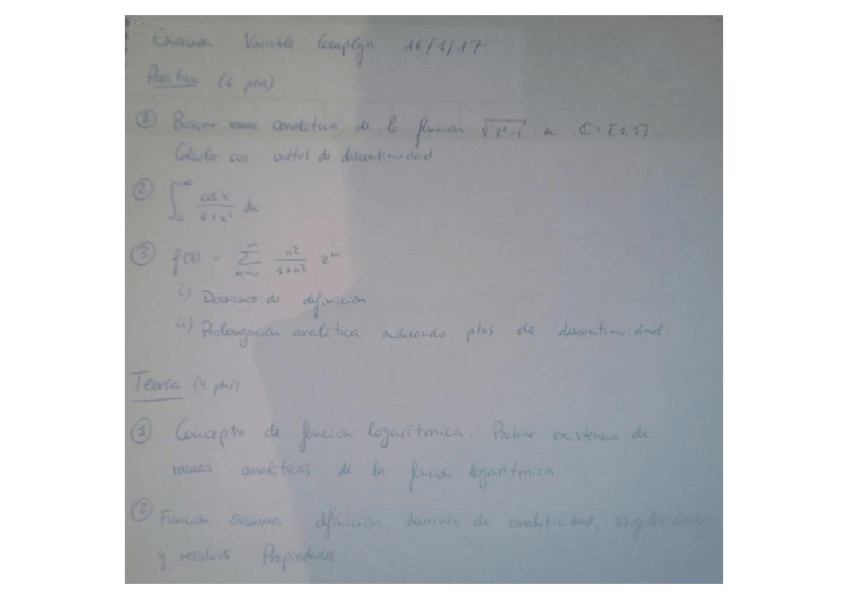 Examen Variable Compleja 16/1/17
Práctica (6 ptos)
① Buscar rama analítica de la función √(z²-1) en C\[-1,1].
Calcular sus saltos de discontinuidad
② ∫₀^∞ cos x / x² dx
③ f(z) = Σ n² / 1+n² zⁿ
i) Dominio de definición
ii) Prolongación analítica indicando ptos de discontinuidad.
Teoría (4 ptos)
① Concepto de función logarítmica. Probar existencia de
ramas analíticas de la función logarítmica
② Función Gamma definición, dominio de analiticidad, singularidades
y residuos Propiedades